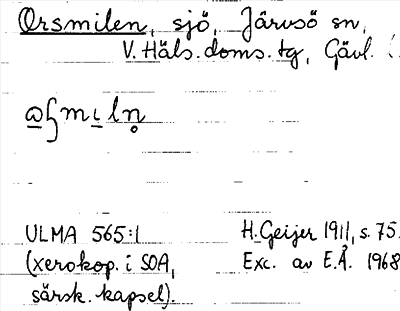 Orsmilen, sjö, Järvsö sn,
V. Häls. doms. tg, Gävl.
ULMA 565:1
(xerokop. i SOA,
särsk. kapsel).
H. Geijer 1911, s. 75.
Exc. av E.Å. 1968